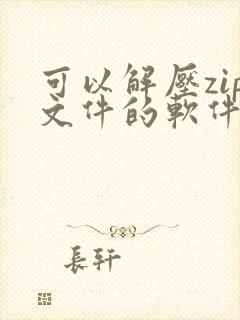 可以解壓zip
文件的軟件
長軒